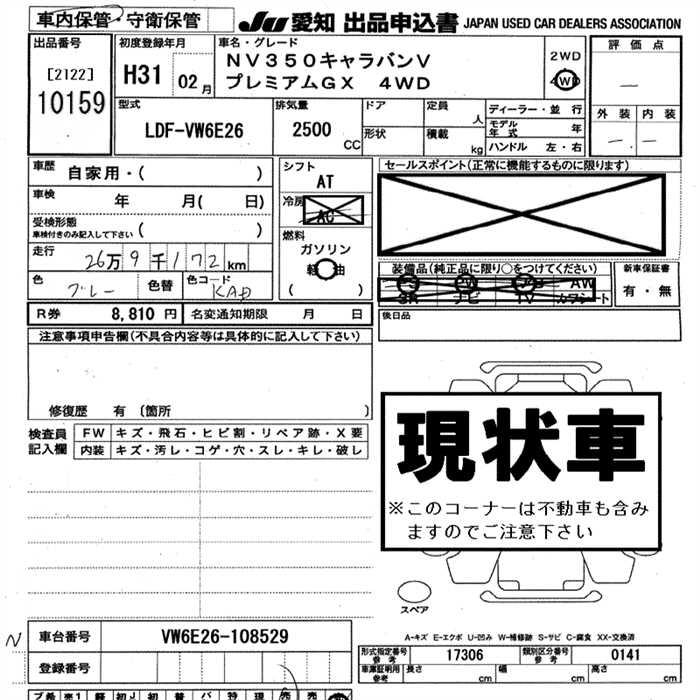 車内保管・守衛保管
JU 愛知 出品申込書 JAPAN USED CAR DEALERS ASSOCIATION
出品番号
[2122]
10159
初度登録年月
H31 02月
車名・グレード
NV350キャラバンV
プレミアムGX 4WD
2WD
4WD
評価点
―
外装 内装
― ―
型式
LDF-VW6E26
排気量
2500
CC
ドア
形状
定員
人
積載
kg
ディーラー・並行
モデル年式 年
ハンドル 左・右
車歴 自家用・( )
車検 年 月( 日)
受検形態
車検付きのみ記入して下さい ( )
走行 26万9千172km
色 グレー 色替 色コード KAD
シフト
AT
冷房
AC
燃料
ガソリン
軽油
( )
セールスポイント(正常に機能するものに限ります)
装備品(純正品に限り○をつけてください)
AW
SR ナビ TV カワシート
新車保証書
有・無
後日品
R券 8,810円 名変通知期限 月 日
注意事項申告欄(不具合内容等は具体的に記入して下さい)
修復歴 有〔箇所 〕
検査員記入欄
FW キズ・飛石・ヒビ割・リペア跡・X要
内装 キズ・汚レ・コゲ・穴・スレ・キレ・破レ
現状車
※このコーナーは不動車も含み
ますのでご注意下さい
スペア
A-キズ E-エクボ U-凹み W-補修跡 S-サビ C-腐食 XX-交換済
N
車台番号 VW6E26-108529
登録番号
形式指定番号 参考 17306 類別区分番号 参考 0141
車庫証明用 参考 長さ cm 幅 cm 高さ cm